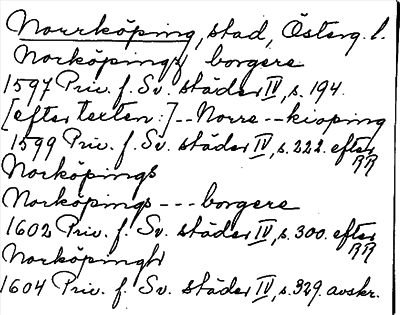 Norrköping, stad, Österg. l.
Norköpingz borgere
1597 Priv. f. Sv. städer IV, s. 194.
[efter texten:] -- Norre -- kioping
1599 Priv. f. Sv. städer IV, s. 222. efter RR
Norköpings
Norköpings --- borgere
1602 Priv. f. Sv. städer IV, s. 300. efter RR
Norköpingh
1604 Priv. f. Sv. städer IV, s. 329. avskr.